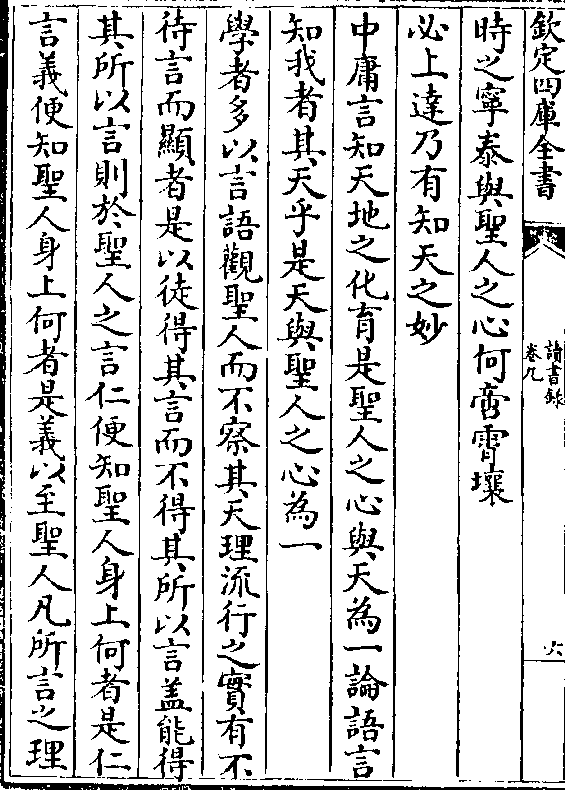 欽定四庫全書
讀書錄
卷九
六
時之寧泰與聖人之心何啻霄壤
必上達乃有知天之妙
中庸言知天地之化育是聖人之心與天為一論語言
知我者其天乎是天與聖人之心為一
學者多以言語觀聖人而不察其天理流行之實有不
待言而顯者是以徒得其言而不得其所以言盖能得
其所以言則於聖人之言仁便知聖人身上何者是仁
言義便知聖人身上何者是義以至聖人凡所言之理